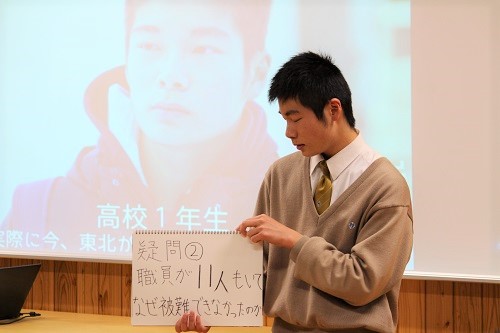 高校1年生
実際に今、東北が
疑問②
職員が11人もいて
なぜ被難できなかったのか